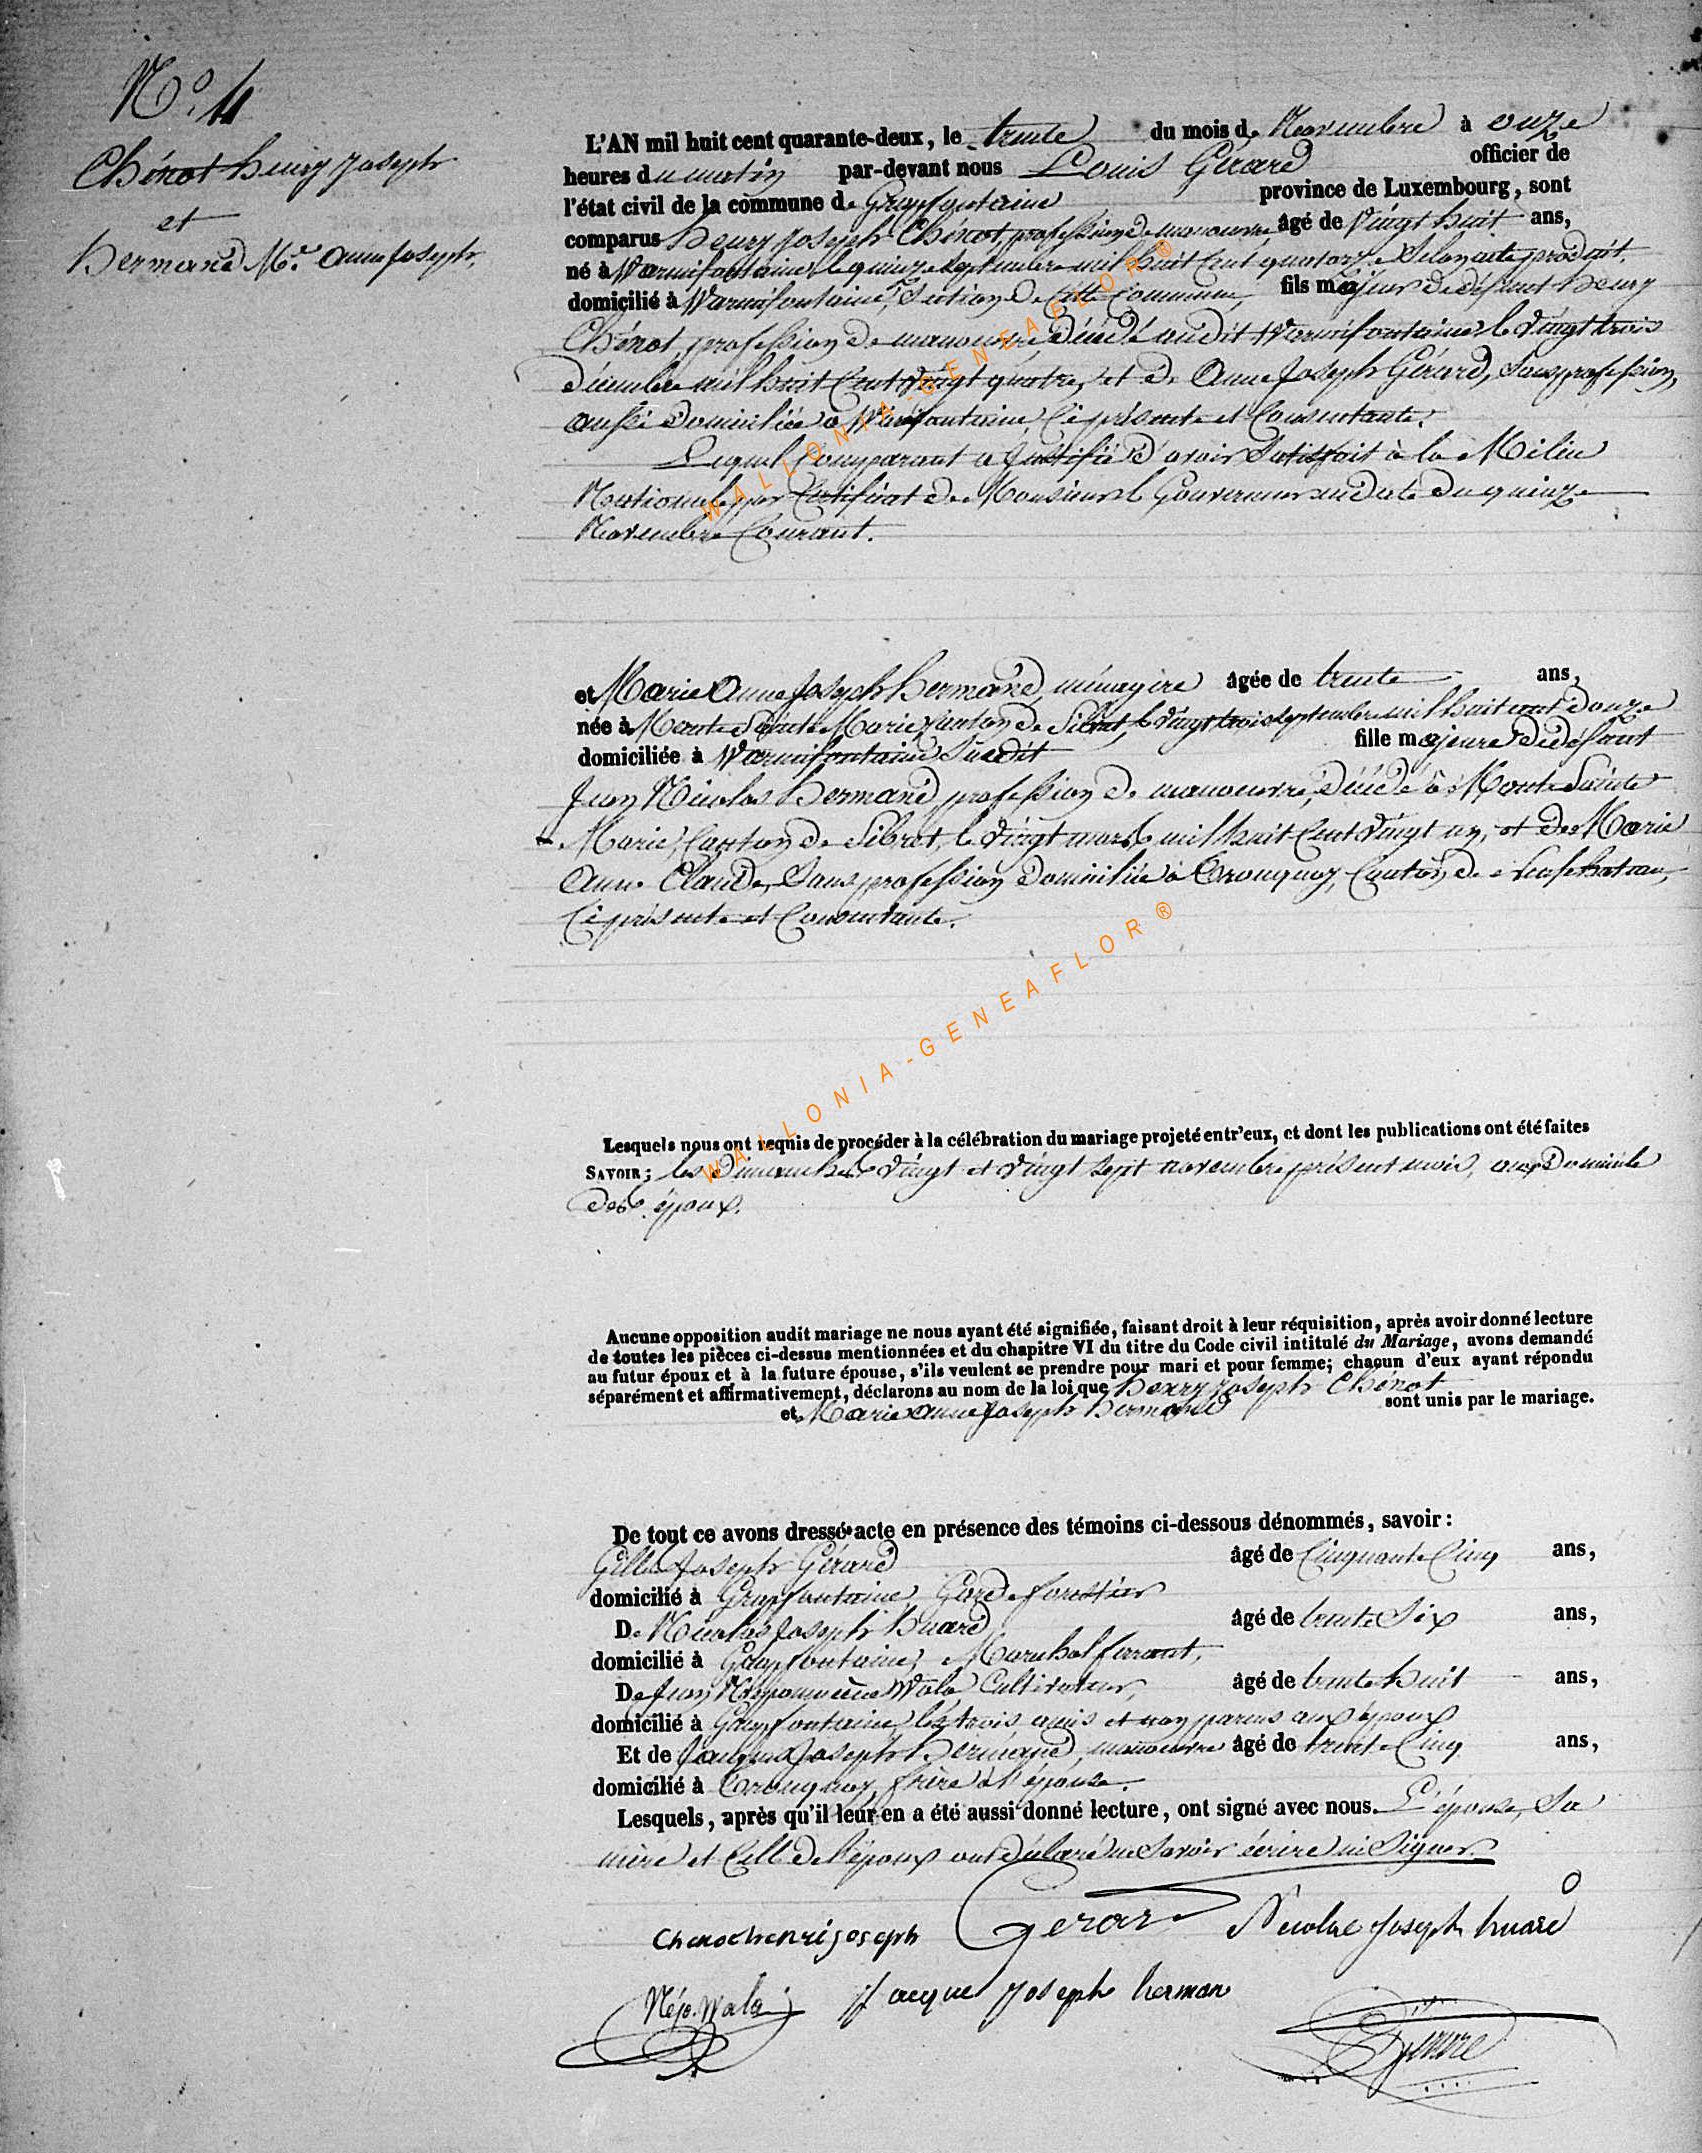 N° 4
Chénot henry Joseph
et
hermand M.ie anne Joseph.
L'AN mil huit cent quarante-deux, le trente du mois de Novembre à onze
heures du matin par-devant nous Louis Gérard officier de
l'état civil de la commune de Grapfontaine province de Luxembourg, sont
comparus henry Joseph Chénot, profession de manoeuvre, âgé de Vingt huit ans,
né à Warmifontaine, le quinze Septembre mil huit Cent quatorze Selon acte produit,
domicilié à Warmifontaine, Section de Cette Commune, fils majeur de défunt henry
Chénot, profession de manouvre, Décédé audit Warmifontaine le Vingt trois
Décembre mil huit Cent Vingt quatre, et de Anne Joseph Gérard, Sans profession,
aussi Domiciliée à Warmifontaine, Ci présente et Consentante.
Lequel Comparant a Justifié d'avoir Satisfait à la Milice
Nationale, par Certificat de Monsieur le Gouverneur en date du quinze
Novembre Courant.
et Marie Anne Joseph hermand, ménagère âgée de trente ans,
née à Monte Sainte Marie, Canton de Sibret, le Vingt trois Septembre mil huit cent douze
domiciliée à Warmifontaine Susdit fille majeure de défunt
Jean Nicolas hermand, profession de manouvre, Décédé à Monte Sainte
Marie, Canton de Sibret, le Vingt mars mil huit Cent Vingt un, et de Marie
Anne Claude, Sans profession Domiciliée à Tronquoy, Canton de Neufchateau,
Ci présente et Consentante.
Lesquels nous ont requis de procéder à la célébration du mariage projeté entr'eux, et dont les publications ont été faites
SAVOIR ; les Dimanches Vingt et Vingt Sept novembre présent mois, aux Domicile
des époux.
Aucune opposition audit mariage ne nous ayant été signifiée, faisant droit à leur réquisition, après avoir donné lecture
de toutes les pièces ci-dessus mentionnées et du chapitre VI du titre du Code civil intitulé du Mariage, avons demandé
au futur époux et à la future épouse, s'ils veulent se prendre pour mari et pour femme; chacun d'eux ayant répondu
séparément et affirmativement, déclarons au nom de la loi que henry Joseph Chénot
et Marie anne Joseph hermand sont unis par le mariage.
De tout ce avons dressé acte en présence des témoins ci-dessous dénommés, savoir :
Gille Joseph Gérard âgé de Cinquante Cinq ans,
domicilié à Grapfontaine, Garde forestier
De Nicolas Joseph huard âgé de trente Six ans,
domicilié à Grapfontaine, Marechal ferrant,
De Jean Népomucène Wala Cultivateur, âgé de trente huit ans,
domicilié à Grapfontaine, les trois amis et non parens aux époux
Et de Jacques Joseph hermand, manoeuvre âgé de trente Cinq ans,
domicilié à Tronquoy, frère à l'épouse.
Lesquels, après qu'il leur en a été aussi donné lecture, ont signé avec nous. L'épouse, Sa
mère et Celle de l'époux ont déclaré ne Savoir écrire ni Signer.
Chenot henri joseph Gerard Nicolas Joseph huard
Népo. Wala Jacque Joseph herman
Gérard
WALLONIA-GENEAFLOR®
WALLONIA-GENEAFLOR®